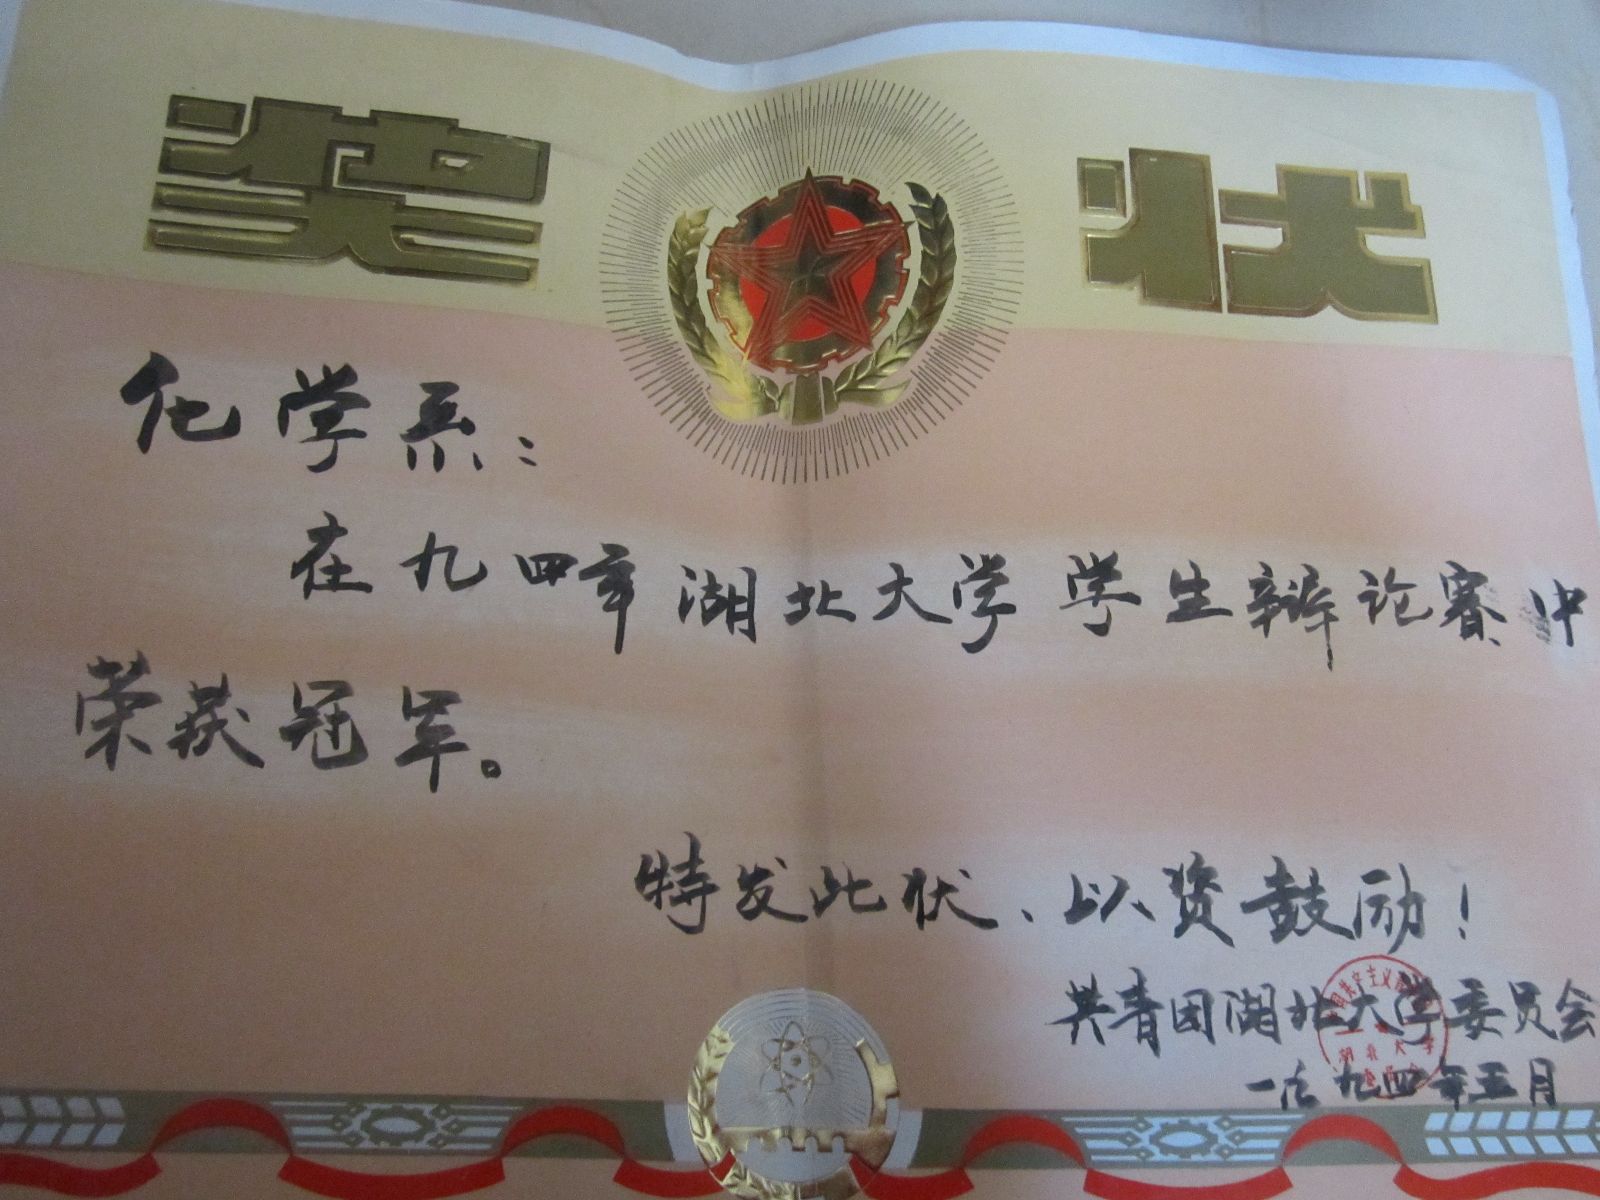 奖状
化学系：
在九四年湖北大学学生辩论赛中
荣获冠军。
特发此状、以资鼓励！
共青团湖北大学委员会
一九九四年五月
湖北大学